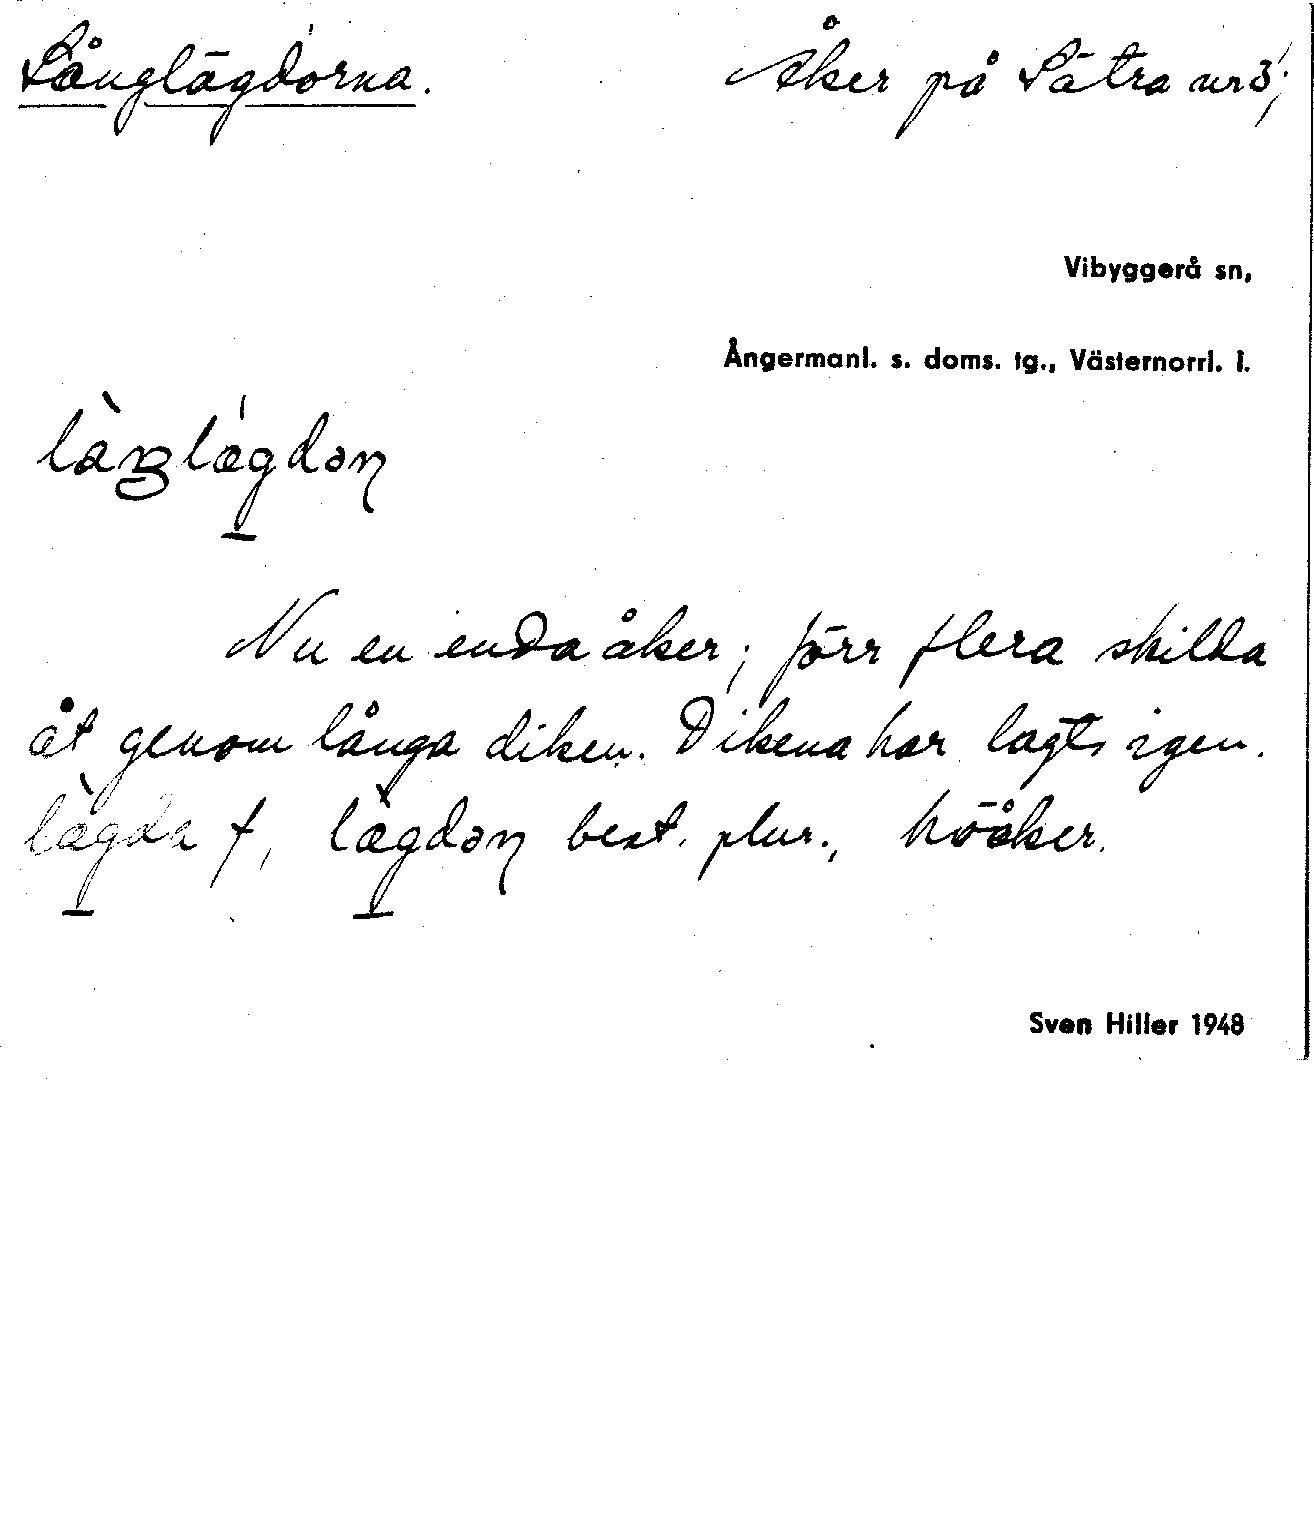 Långlägdorna.
Åker på Sätra nr 3;
Vibyggerå sn,
Ångermanl. s. doms. tg., Västernorrl. l.
làŋlǽgdəɳ
Nu en enda åker; förr flera skilda
åt genom långa diken. Dikena har lagts igen.
lægda f, lægdəɳ best. plur., höåker.
Sven Hiller 1948